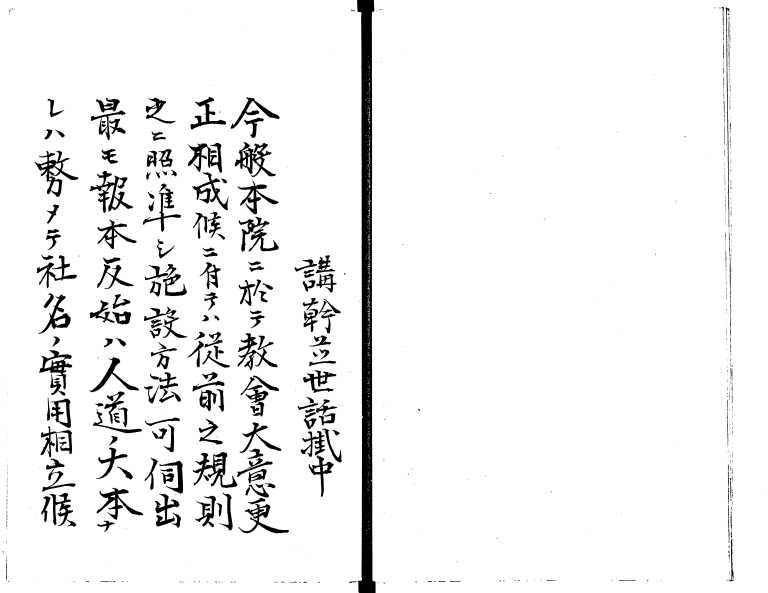 講幹並世話掛中
今般本院ニ於テ教會大意更
正相成候ニ付テハ従前之規則
史ニ照準シ施設方法可伺出
最モ報本反始ハ人道ノ大本ナ
レハ敦メテ社名ノ實用相立候